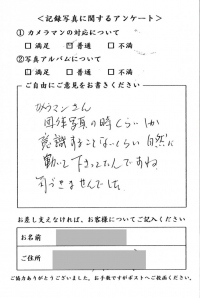 ＜記録写真に関するアンケート＞
① カメラマンの対応について
□ 満足 ☑ 普通 □ 不満
②写真アルバムについて
□ 満足 □ 普通 □ 不満
ご自由にご意見をお書きください
カメラマンさん
団体写真の時くらいしか
意識することないくらい自然に
動いて下さってたんですね
気づきませんでした
お差し支えなければ、お客様についてご記入ください
お名前
ご住所
ご協力ありがとうございました。お手数ですがポストへご投函ください。